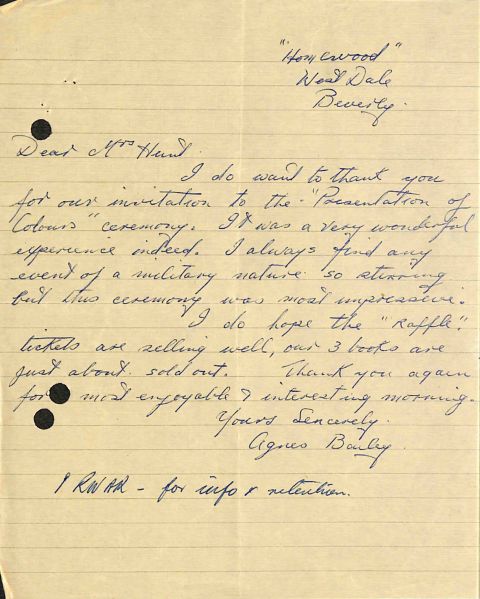 "Homewood"
West Dale
Beverly.
Dear Mrs Hunt.
I do want to thank you
for our invitation to the "Presentation of
Colours" ceremony. It was a very wonderful
experience indeed. I always find any
event of a military nature so stirring
but this ceremony was most impressive.
I do hope the "Raffle"
tickets are selling well, our 3 books are
just about sold out. Thank you again
for most enjoyable & interesting morning.
Yours Sincerely.
Agnes Bailey.
1 RWAR - for info & retention.